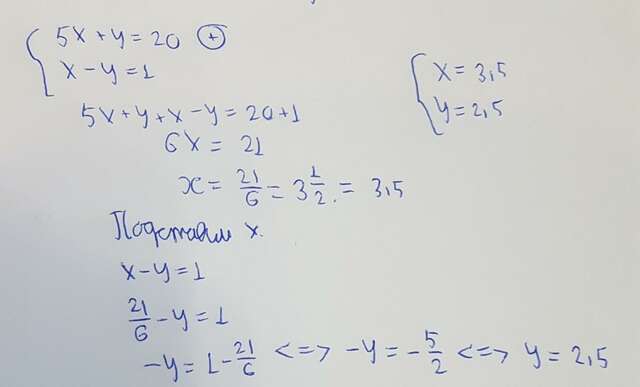 5x + y = 20 ⊕
x - y = 1
5x + y + x - y = 20 + 1
6x = 21
x = 21/6 = 3 1/2 = 3,5
Подставим x.
x - y = 1
21/6 - y = 1
-y = 1 - 21/6 <=> -y = -5/2 <=> y = 2,5
x = 3,5
y = 2,5